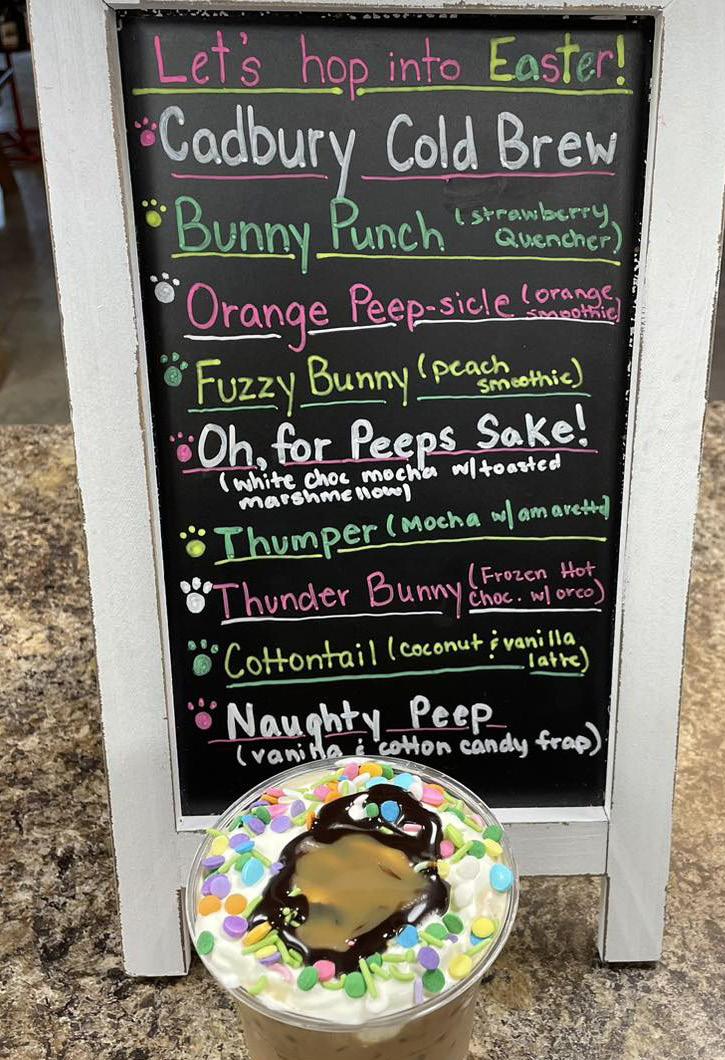 Let's hop into Easter!
Cadbury Cold Brew
Bunny Punch (strawberry
Quencher)
Orange Peep-sicle (orange
smoothie)
Fuzzy Bunny (peach
smoothie)
Oh, for Peeps Sake!
(white choc mocha w/toasted
marshmellow)
Thumper (Mocha w/amaretto)
Thunder Bunny (Frozen Hot
Choc. w/oreo)
Cottontail (coconut & vanilla
latte)
Naughty Peep
(vanilla & cotton candy frap)